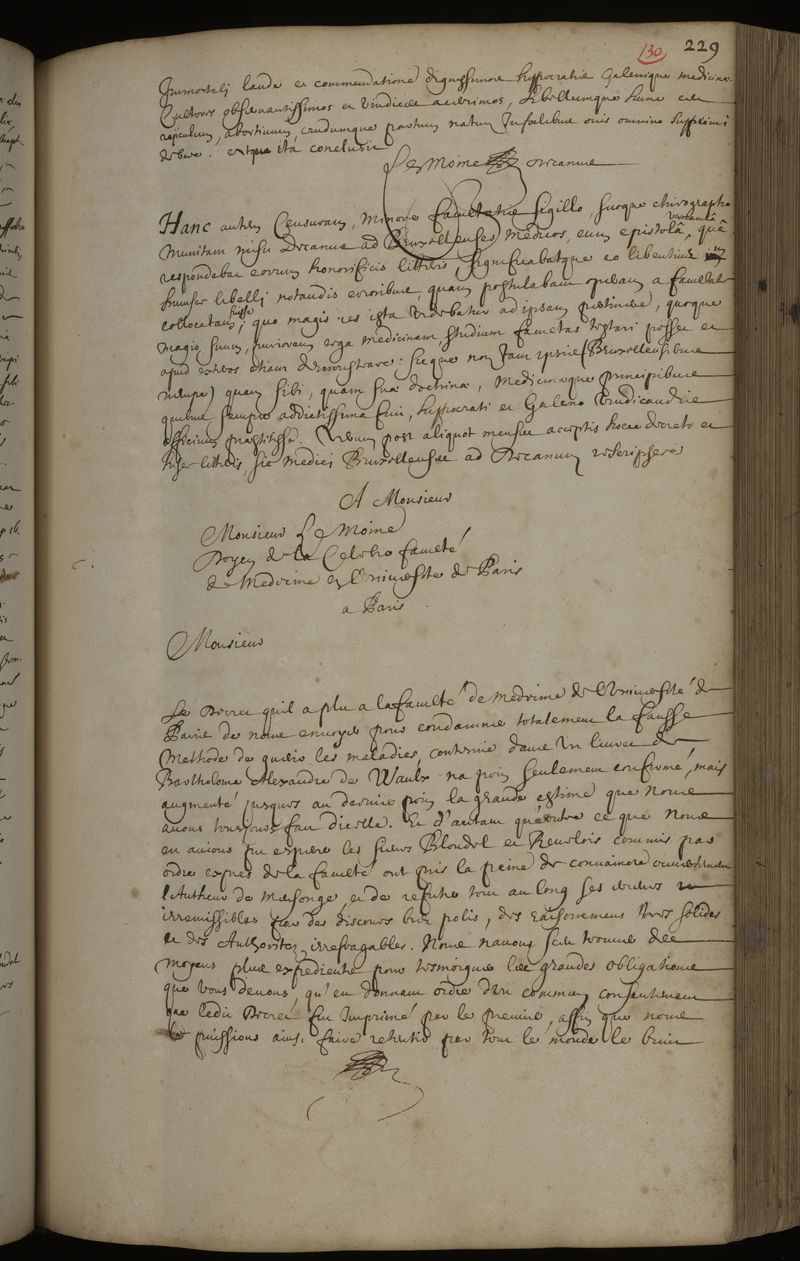 130 229
Immortali laude et commendatione dignissimae hippocraticae Galenicaeque medicinae
Cultores observantissimos et vindices acerrimos, libellumque hunc ceu
ridiculum, abortivum, crudumque partum natum Infoelicibus avis omnino Supprimi
debere. Atque ita conclusit
Le Moine Decanus
Hanc autem Censuram, Minore facultatis Sigillo, suoque chirographo
Munitam misit Decanus ad Bruxellenses Medicos, cum epistolâ vernaculâ, quâ
respondebat eorum honorificis litteris, Significabatque eo libentius in
huiusce libelli notandis erroribus, quam postulabant operam a facultate
collocatam fuisse, quo magis res ista videbatur ad ipsam pertinere, quoque
magis suum, puriorem erga medicinam Studium facultas testari posset et
apud exteros etiam demonstrare: Sicque non tam ipsis (Bruxellensibus
nempe) quam sibi, quam suae doctrinae, Medicinaeque principibus
quibus semper addictissima fuit, hippocrati et Galeno Vindicandis
officium praestitisse. Verum post aliquot menses acceptis hocce decreto et
hisce litteris, sic medici Bruxellenses ad Decanum rescripsere
A Monsieur
Monsieur Le Moine
Doyen de la Celebre faculté
de Medecine en l'Université de Paris
a Paris
Monsieur
Le Decret quil a plu a la faculté de Medecine de l'Université de
Paris de nous envoyer pour condamner totalement la fausse
Methode de guerir les maladies, contenue dans Un livret de
Bartholome Alexandre de Waulx na point seulement confirmé, mais
augmenté jusques au dernier point la grande estime que Nous
avons tousjours fait dicelle. Et d'autant qu'outre ce que Nous
en avions pu esperer les Sieurs Blondel et Reverois commis par
ordre expres de la faculté ont pris la peine de convaincre
l'Autheur de Mensonge, et de refuter tout au long ses erreurs
irremissibles par des discours bien polis, des raisonnemens tres solides
et des Authoritez irrefragables. Nous navons sceu trouver des
moyens plus expedients pour tesmoigner les grandes obligations
que vous devons, qu'en donnant ordre d'un commun consentement
que ledit Decret fut Imprimé par le premier, affin que nous
le puissions ainsi faire retentir par tout le monde le bruit